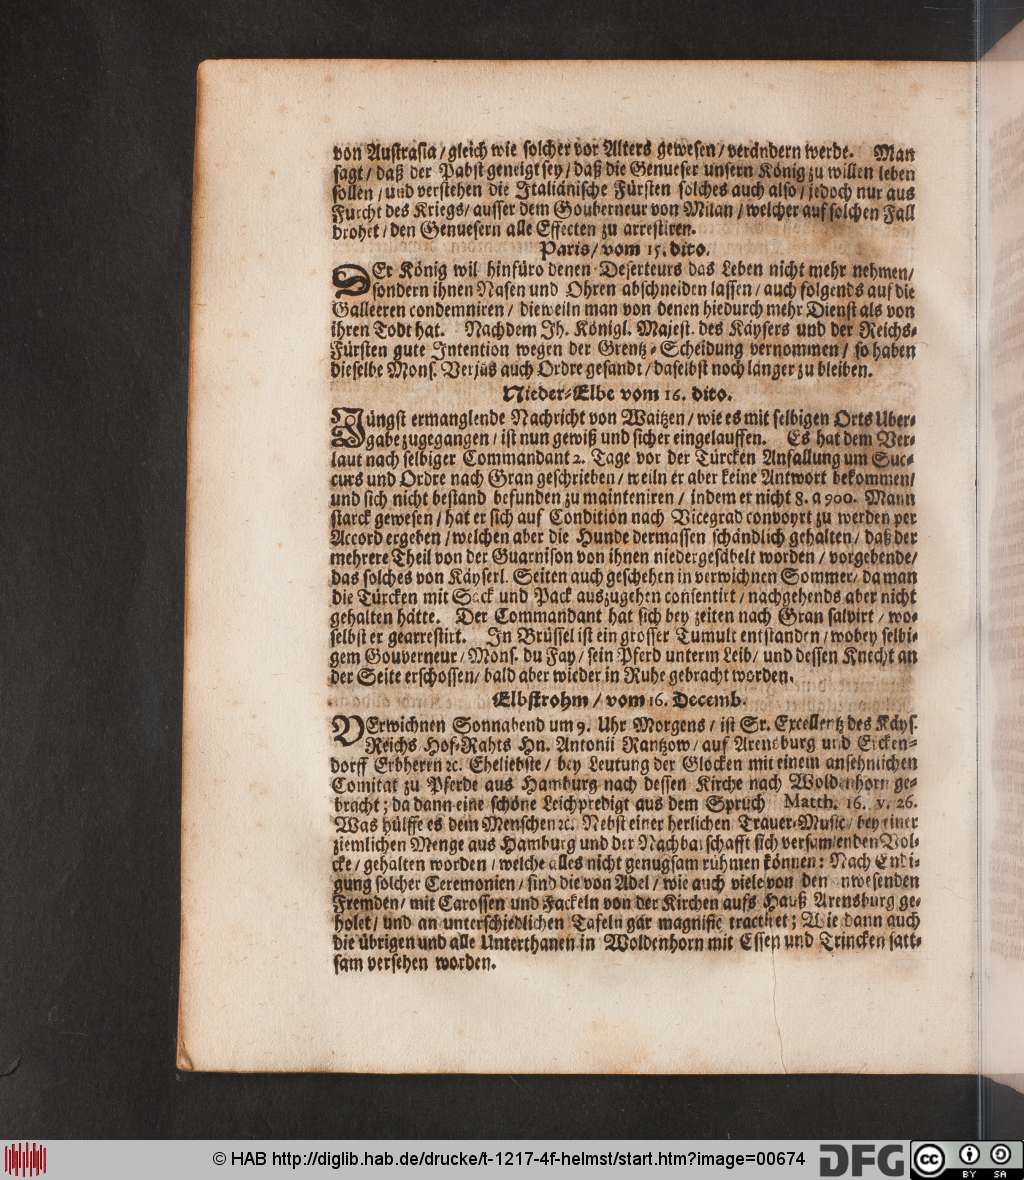 von Austrasia / gleich wie solcher vor Alters gewesen / verändern werde. Man
sagt / daß der Pabst geneigt sey / daß die Genueser unsern König zu willen leben
sollen / und verstehen die Italiänische Fürsten solches auch also / jedoch nur aus
Furcht des Kriegs / ausser dem Gouberneur von Milan / welcher auf solchen Fall
drohet / den Genuesern alle Effecten zu arrestiren.
Paris / vom 15. dito.
DEr König wil hinfüro denen Deserteurs das Leben nicht mehr nehmen /
sondern ihnen Nasen und Ohren abschneiden lassen / auch folgends auf die
Galleeren condemniren / dieweiln man von denen hiedurch mehr Dienst als von
ihren Todt hat. Nachdem Ih. Königl. Majest. des Käysers und der Reichs-
Fürsten gute Intention wegen der Grentz-Scheidung vernommen / so haben
dieselbe Mons. Verjüs auch Ordre gesandt / daselbst noch länger zu bleiben.
Nieder-Elbe vom 16. dito.
Jüngst ermanglende Nachricht von Waitzen / wie es mit selbigen Orts Uber-
gabe zugegangen / ist nun gewiß und sicher eingelauffen. Es hat dem Ver-
laut nach selbiger Commandant 2. Tage vor der Türcken Anfallung um Suc-
curs und Ordre nach Gran geschrieben / weiln er aber keine Antwort bekommen /
und sich nicht bestand befunden zu mainteniren / indem er nicht 8. a 900. Mann
starck gewesen / hat er sich auf Condition nach Vicegrad convoyrt zu werden per
Accord ergeben / welchen aber die Hunde dermassen schändlich gehalten / daß der
mehrere Theil von der Guarnison von ihnen niedergesäbelt worden / vorgebende /
das solches von Käyserl. Seiten auch geschehen in verwichnen Sommer / da man
die Türcken mit Sack und Pack auszugehen consentirt / nachgehends aber nicht
gehalten hätte. Der Commandant hat sich bey zeiten nach Gran salvirt / wo-
selbst er gearrestirt. In Brüssel ist ein grosser Tumult entstanden / wobey selbi-
gem Gouverneur / Mons. du Fay / sein Pferd unterm Leib / und dessen Knecht an
der Seite erschossen / bald aber wieder in Ruhe gebracht worden.
Elbstrohm / vom 16. Decemb.
VErwichnen Sonnabend um 9. Uhr Morgens / ist Sr. Excellentz des Käys.
Reichs Hof-Rahts Hn. Antonii Rantzow / auf Arensburg und Eicken-
dorff Erbherrn ꝛc. Eheliebste / bey Leutung der Glocken mit einem ansehnlichen
Comitat zu Pferde aus Hamburg nach dessen Kirche nach Woldenhorn ge-
bracht ; da dann eine schöne Leichpredigt aus dem Spruch Matth. 16. v. 26.
Was hülffe es dem Menschen ꝛc. Nebst einer herlichen Trauer-Music / bey einer
ziemlichen Menge aus Hamburg und der Nachbarschafft sich versamlenden Vol-
cke / gehalten worden / welche alles nicht genugsam rühmen können : Nach Endi-
gung solcher Ceremonien / sind die von Adel / wie auch viele von den anwesenden
Fremden / mit Carossen und Fackeln von der Kirchen aufs Hauß Arensburg ge-
holet / und an unterschiedlichen Tafeln gar magnific tractiret ; Wie dann auch
die übrigen und alle Unterthanen in Woldenhorn mit Essen und Trincken satt-
sam versehen worden.
© HAB http://diglib.hab.de/drucke/t-1217-4f-helmst/start.htm?image=00674
DFG
cc BY SA